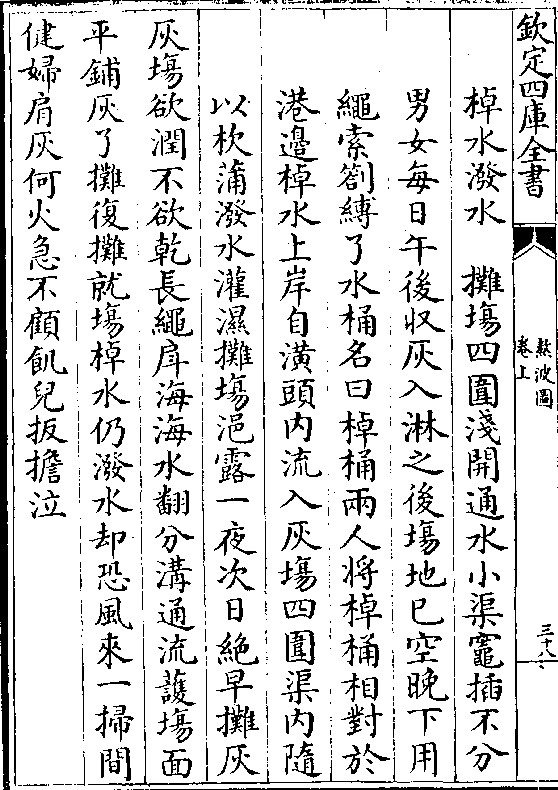 欽定四庫全書
熬波圖
卷上
三十八
棹水潑水　攤場四圍淺開通水小渠竈插不分
男女每日午後収灰入淋之後塲地已空晚下用
繩索劄縳了水桶名曰棹桶兩人將棹桶相對於
港邉棹水上岸自潢頭内流入灰塲四圍渠内隨
以杴蒲潑水灌濕攤塲浥露一夜次日絶早攤灰
灰塲欲潤不欲乾長繩戽海海水翻分溝通流䕶塲面
平鋪灰了攤復攤就塲棹水仍潑水却恐風來一掃間
健婦肩灰何火急不顧飢兒扳擔泣